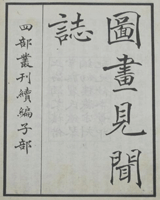 圖畫見聞
誌
四部叢刊續編子部